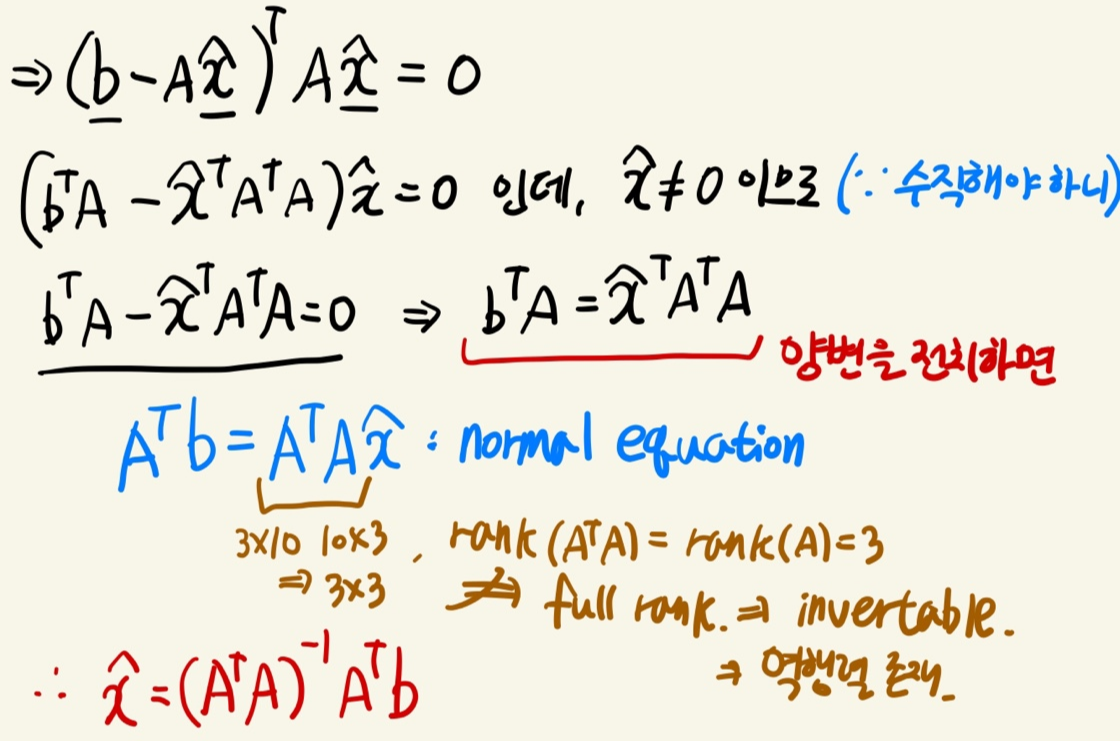 ⇒ (b - Ax̂)ᵀ Ax̂ = 0
(bᵀA - x̂ᵀAᵀA)x̂ = 0 인데, x̂ ≠ 0 이므로 (∵ 수직해야 하니)
bᵀA - x̂ᵀAᵀA = 0 ⇒ bᵀA = x̂ᵀAᵀA
양변을 전치하면
Aᵀb = AᵀAx̂ : normal equation
3x10 10x3 , rank(AᵀA) = rank(A) = 3
⇒ 3x3 ⇒ full rank. ⇒ invertable.
⇒ 역행렬 존재.
∴ x̂ = (AᵀA)⁻¹Aᵀb